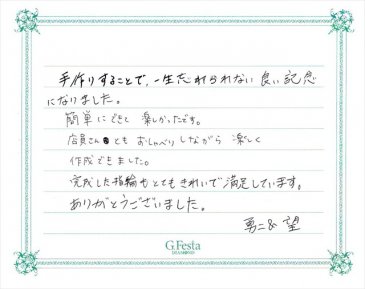 手作りすることで、一生忘れられない良い記念
になりました。
簡単にできて 楽しかったです。
店員さんとも おしゃべりしながら 楽しく
作成できました。
完成した指輪もとてもきれいで満足しています。
ありがとうございました。
勇二&望
G.Festa
DIAMONDS